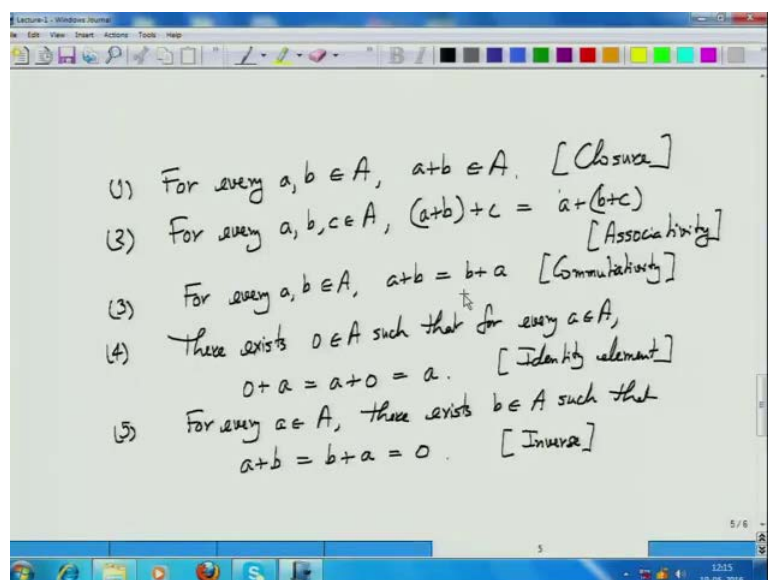 Lecture-1 - Windows Journal
File Edit View Insert Actions Tools Help
(1) For every a, b ∈ A, a+b ∈ A. [Closure]
(2) For every a, b, c ∈ A, (a+b)+c = a+(b+c)
[Associativity]
(3) For every a, b ∈ A, a+b = b+a [Commutativity]
(4) There exists 0 ∈ A such that for every a ∈ A,
0+a = a+0 = a. [Identity element]
(5) For every a ∈ A, there exists b ∈ A such that
a+b = b+a = 0. [Inverse]
5 / 6
5
12:15